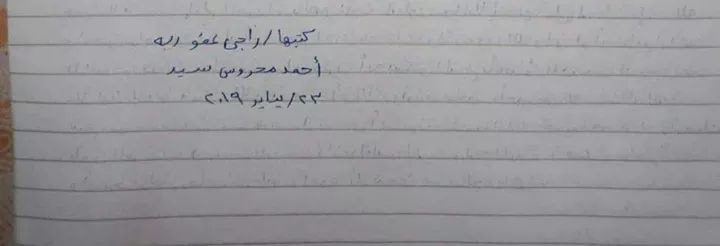 كتبها/راجى عفو ربه
أحمد محروس سيد
٢٣/يناير ٢٠١٩